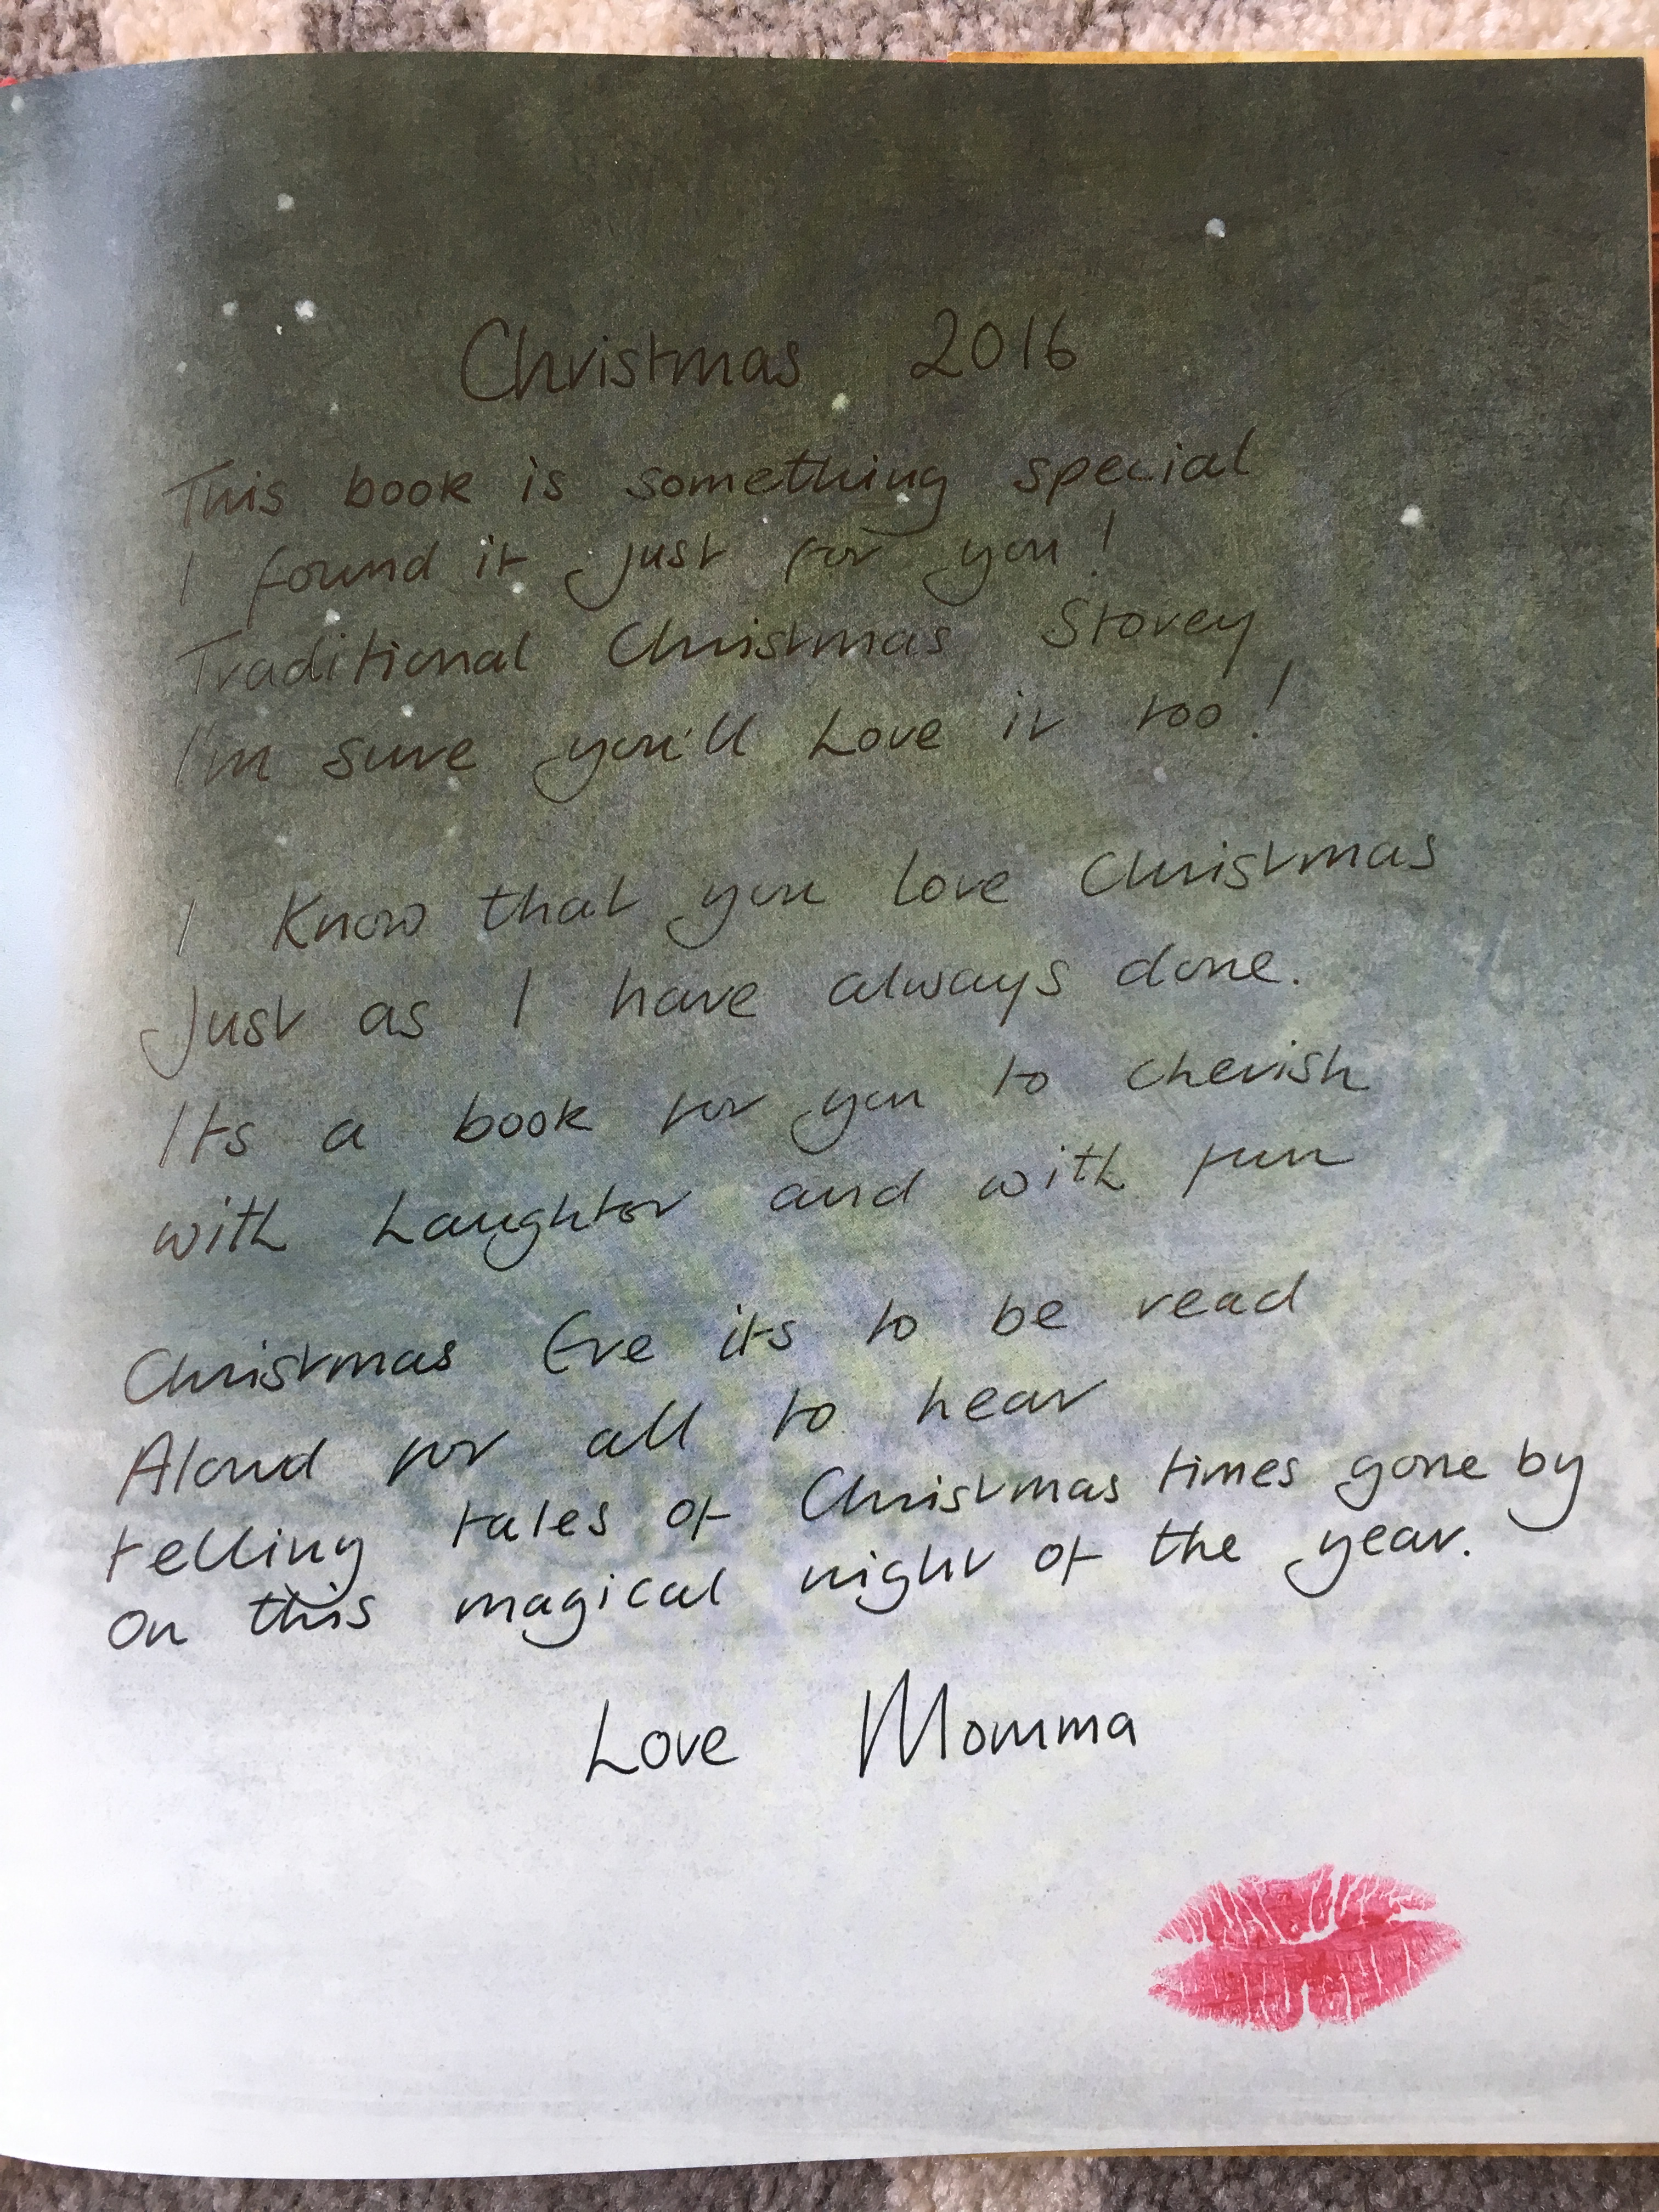 Christmas 2016
This book is something special
I found it just for you!
Traditional Christmas Storey
I'm sure you'll Love it too!
I Know that you love Christmas
Just as I have always done.
Its a book for you to cherish
with Laughter and with fun
Christmas Eve its to be read
Aloud for all to hear
telling tales of Christmas times gone by
On this magical night of the year.
Love Momma